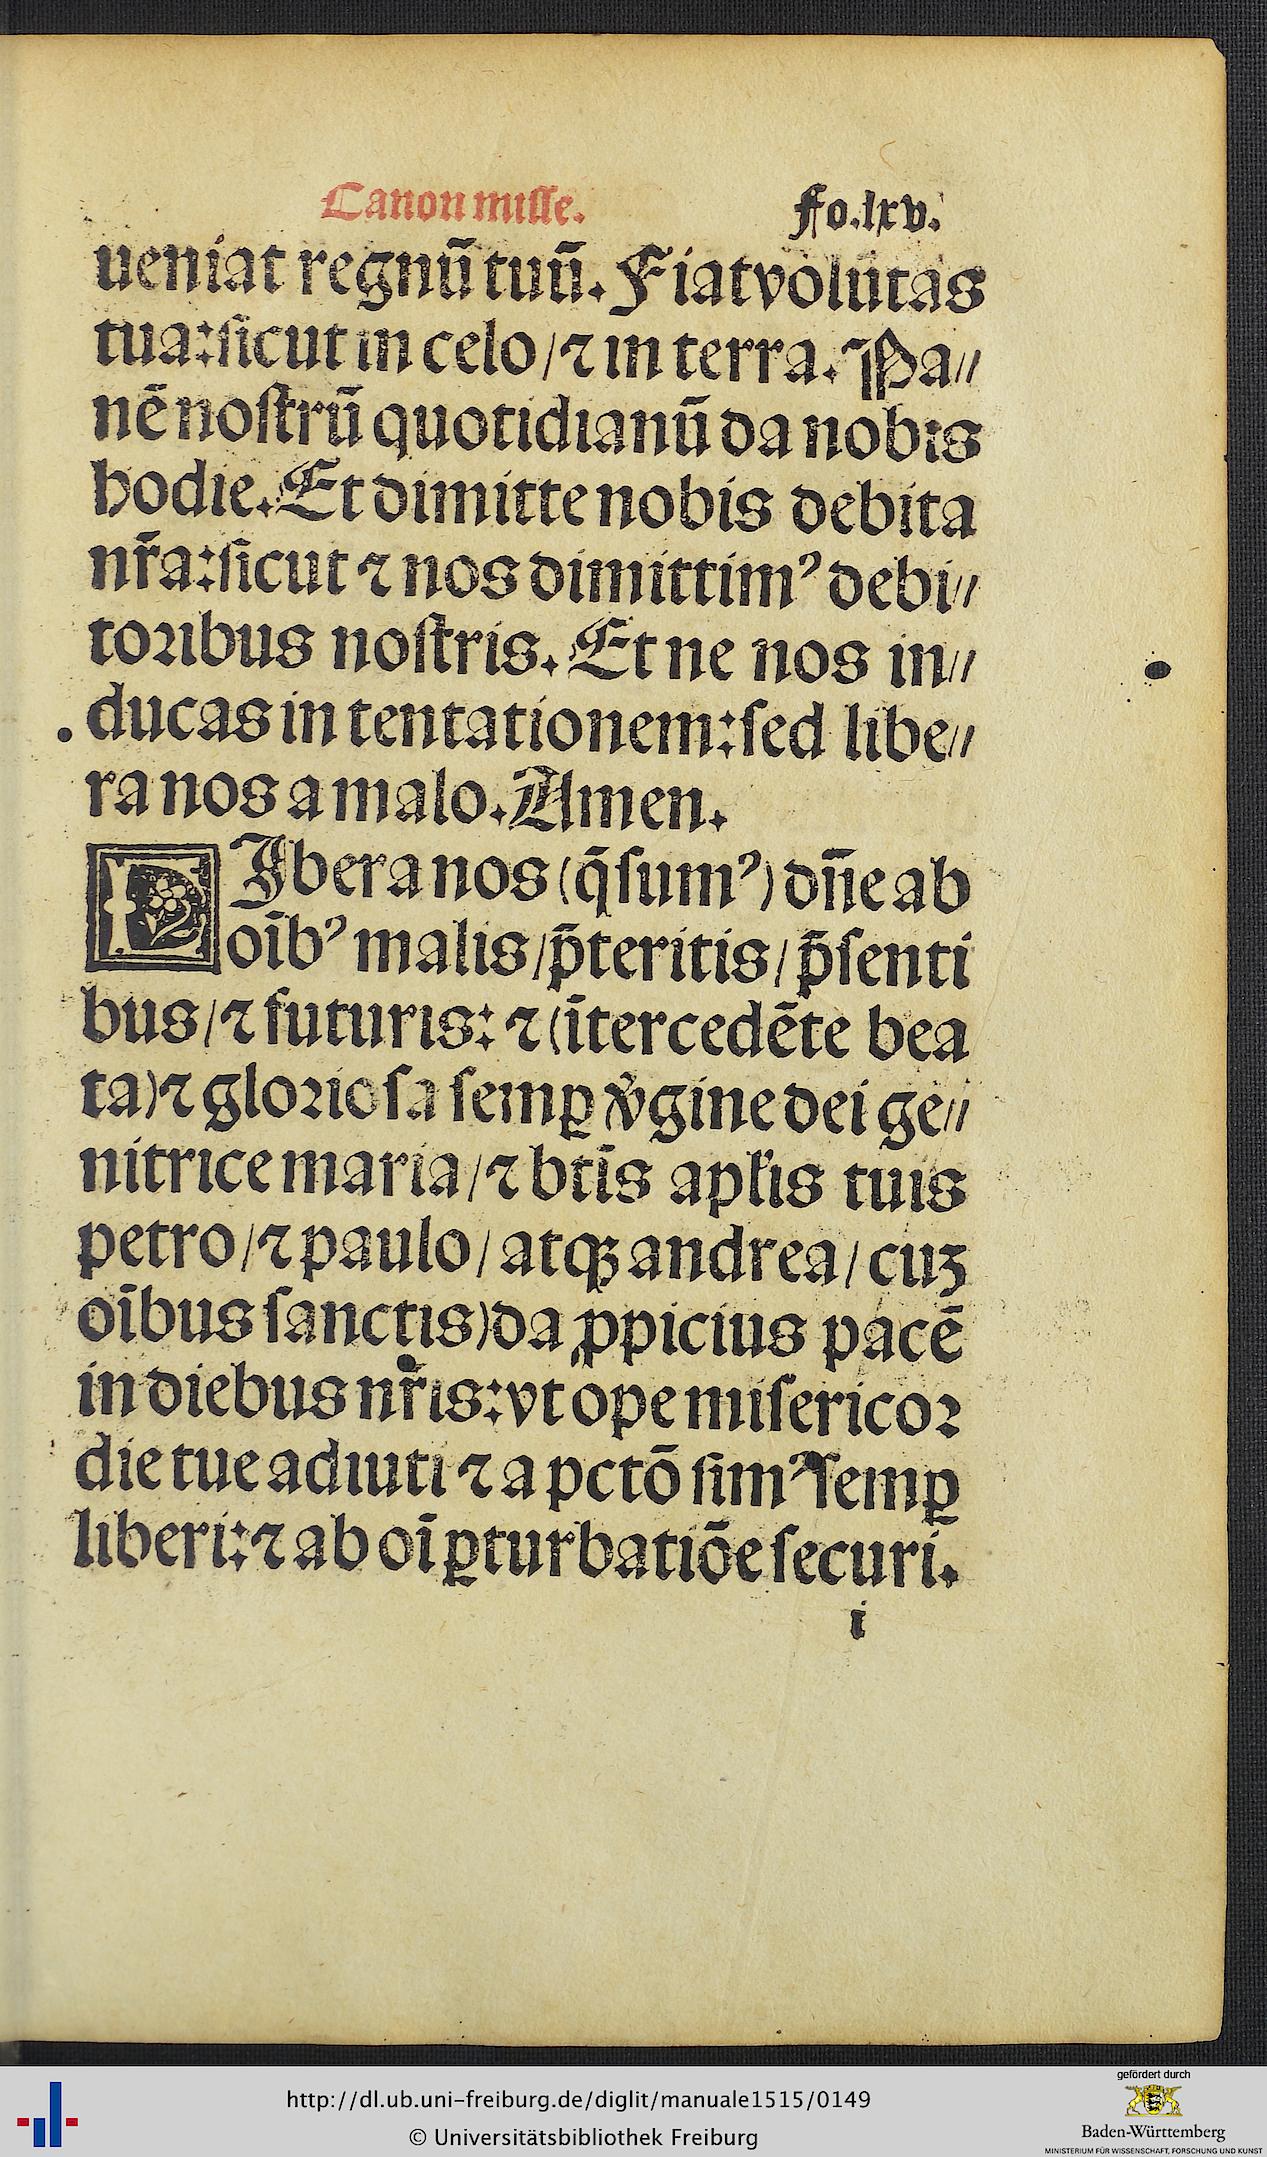 Canon misse. Fo.lxv.
ueniat regnū tuū. Fiat volūtas
tua: sicut in celo / ⁊ in terra. Pa⸗
nē noſtrū quotidianū da nobis
hodie. Et dimitte nobis debita
nr̄a: ſicut ⁊ nos dimittimꝰ debi⸗
toꝛibus noſtris. Et ne nos in⸗
ducas in tentationem: ſed libe⸗
ra nos a malo. Amen.
LIbera nos (q̄ſumꝰ) dn̄e ab
oībꝰ malis / p̄teritis / p̄ſenti
bus / ⁊ futuris: ⁊ (ītercedēte bea
ta) ⁊ gloꝛioſa ſemꝑ v̓gine dei ge⸗
nitrice maria / ⁊ btīs apl̓is tuis
petro / ⁊ paulo / atqꝫ andrea / cuꝫ
oībus ſanctis) da ꝓpicius pacē
in diebus nr̄is: vt ope miſericoꝛ
die tue adiuti ⁊ a pctō ſimꝰ ſemꝑ
liberi: ⁊ ab oī ꝑturbatiōe ſecuri.
i
http://dl.ub.uni-freiburg.de/diglit/manuale1515/0149
© Universitätsbibliothek Freiburg
gefördert durch
Baden-Württemberg
MINISTERIUM FÜR WISSENSCHAFT, FORSCHUNG UND KUNST